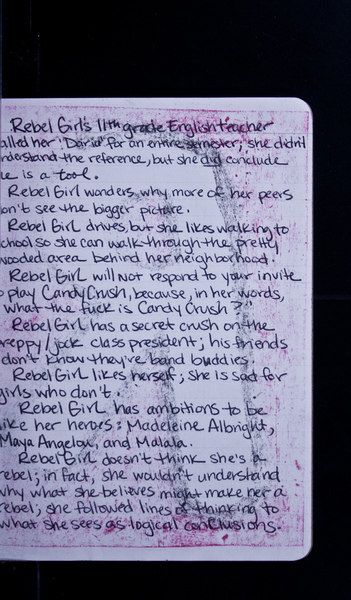 Rebel Girl's 11th grade English teacher
alled her 'Daria' for an entire semester; she didn't
nderstand the reference, but she did conclude
e is a tool.
Rebel Girl wonders why more of her peers
on't see the bigger picture.
Rebel Girl drives, but she likes walking to
chool so she can walk through the pretty
wooded area behind her neighborhood.
Rebel Girl will not respond to your invite
o play Candy Crush, because, in her words,
"what the fuck is Candy Crush?"
Rebel Girl has a secret crush on the
preppy/jock class president; his friends
don't know they're band buddies.
Rebel Girl likes herself; she is sad for
girls who don't.
Rebel Girl has ambitions to be
like her heroes: Madeleine Albright,
Maya Angelou, and Malala.
Rebel Girl doesn't think she's a
rebel; in fact, she wouldn't understand
why what she believes might make her a
rebel; she followed lines of thinking to
what she sees as logical conclusions.